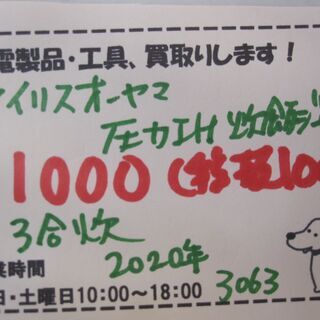 電製品・工具、買取りします！
アイリスオーヤマ
圧力IH 炊飯ジ
1000（税抜100
3合炊
業時間 2020年
日・土曜日10:00～18:00 3063